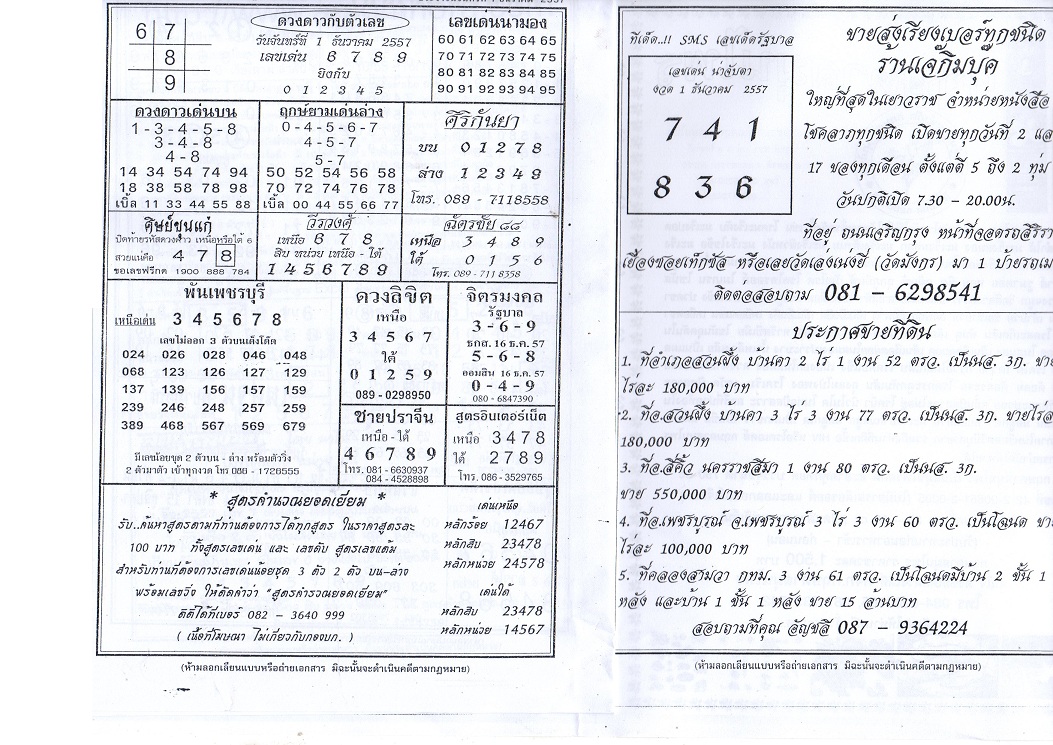 6 7
8
9
ดวงดาวกับตัวเลข
วันจันทร์ที่ 1 ธันวาคม 2557
เลขเด่น 6 7 8 9
ยิงกับ
0 1 2 3 4 5
เลขเด่นน่ามอง
60 61 62 63 64 65
70 71 72 73 74 75
80 81 82 83 84 85
90 91 92 93 94 95
ดวงดาวเด่นบน
1-3-4-5-8
3-4-8
4-8
14 34 54 74 94
18 38 58 78 98
เบิ้ล 11 33 44 55 88
ฤกษ์ยามเด่นล่าง
0-4-5-6-7
4-5-7
5-7
50 52 54 56 58
70 72 74 76 78
เบิ้ล 00 44 55 66 77
ศิริกันยา
บน 0 1 2 7 8
ล่าง 1 2 3 4 9
โทร. 089 - 7118558
ศิษย์ขุนแก่
ปิดท้ายรหัสดวงดาว เหนือหรือใต้ 6
สวยแน่คือ 4 7 8
ขอเลขฟรีกด 1900 888 784
วีรวงศ์
เหนือ 6 7 8
สิบ หน่วย เหนือ - ใต้
1 4 5 6 7 8 9
ฉัตรชัย ๘๘
เหนือ 3 4 8 9
ใต้ 0 1 5 6
โทร. 089 - 711 8358
พันเพชรบุรี
เหนือเด่น 3 4 5 6 7 8
เลขไม่ออก 3 ตัวบนเต็งโต๊ด
024 026 028 046 048
068 123 126 127 129
137 139 156 157 159
239 246 248 257 259
389 468 567 569 679
มีเลขน้อยชุด 2 ตัวบน - ล่าง พร้อมตัววิ่ง
2 ตัวมาตัว เข้าทุกงวด โทร 086 - 1728555
ดวงลิขิต
เหนือ
3 4 5 6 7
ใต้
0 1 2 5 9
089 - 0298950
จิตรมงคล
รัฐบาล
3 - 6 - 9
ธกส. 16 ธ.ค. 57
5 - 6 - 8
ออมสิน 16 ธ.ค. 57
0 - 4 - 9
080 - 6847390
ชายปราจีน
เหนือ - ใต้
4 6 7 8 9
โทร. 081 - 6630937
084 - 4528898
สูตรอินเตอร์เน็ต
เหนือ 3 4 7 8
ใต้ 2 7 8 9
โทร. 086 - 3529765
* สูตรคำนวณยอดเยี่ยม *
รับ..ค้นหาสูตรตามที่ท่านต้องการได้ทุกสูตร ในราคาสูตรละ
100 บาท ทั้งสูตรเลขเด่น และ เลขดับ สูตรเลขแต้ม
สำหรับท่านที่ต้องการเลขเด่นน้อยชุด 3 ตัว 2 ตัว บน-ล่าง
พร้อมเลขวิ่ง ให้ติดคำว่า "สูตรคำรวณยอดเยี่ยม"
ติดได้ที่เบอร์ 082 - 3640 999
( เนื้อที่โฆษณา ไม่เกี่ยวกับกองบก. )
เด่นเหนือ
หลักร้อย 12467
หลักสิบ 23478
หลักหน่วย 24578
เด่นใต้
หลักสิบ 23478
หลักหน่วย 14567
(ห้ามลอกเลียนแบบหรือถ่ายเอกสาร มิฉะนั้นจะดำเนินคดีตามกฎหมาย)
ทีเด็ด..!! SMS เลขเด็ดรัฐบาล
เลขเด่น น่าจับตา
งวด 1 ธันวาคม 2557
7 4 1
8 3 6
ขายส่งเรียงเบอร์ทุกชนิด
ร้านเจ๊กิมบุ๊ค
ใหญ่ที่สุดในเยาวราช จำหน่ายหนังสือ
โชคลาภทุกชนิด เปิดขายทุกวันที่ 2 แล
17 ของทุกเดือน ตั้งแต่ตี 5 ถึง 2 ทุ่ม
วันปกติเปิด 7.30 - 20.00น.
ที่อยู่ ถนนเจริญกรุง หน้าที่จอดรถสิริรา
เยื้องซอยเท็กซัส หรือเลยวัดเล่งเน่ยยี่ (วัดมังกร) มา 1 ป้ายรถเม
ติดต่อสอบถาม 081 - 6298541
ประกาศขายที่ดิน
1. ที่อำเภอสวนผึ้ง บ้านคา 2 ไร่ 1 งาน 52 ตรว. เป็นนส. 3ก. ขาย
ไร่ละ 180,000 บาท
2. ที่อ.สวนผึ้ง บ้านคา 3 ไร่ 3 งาน 77 ตรว. เป็นนส. 3ก. ขายไร่ล
180,000 บาท
3. ที่อ.สีคิ้ว นครราชสีมา 1 งาน 80 ตรว. เป็นนส. 3ก.
ขาย 550,000 บาท
4. ที่อ.เพชรบูรณ์ จ.เพชรบูรณ์ 3 ไร่ 3 งาน 60 ตรว. เป็นโฉนด ขา
ไร่ละ 100,000 บาท
5. ที่คลองสามวา กทม. 3 งาน 61 ตรว. เป็นโฉนดมีบ้าน 2 ชั้น 1
หลัง และบ้าน 1 ชั้น 1 หลัง ขาย 15 ล้านบาท
สอบถามที่คุณ อัญชลี 087 - 9364224
(ห้ามลอกเลียนแบบหรือถ่ายเอกสาร มิฉะนั้นจะดำเนินคดีตามกฎหมาย)